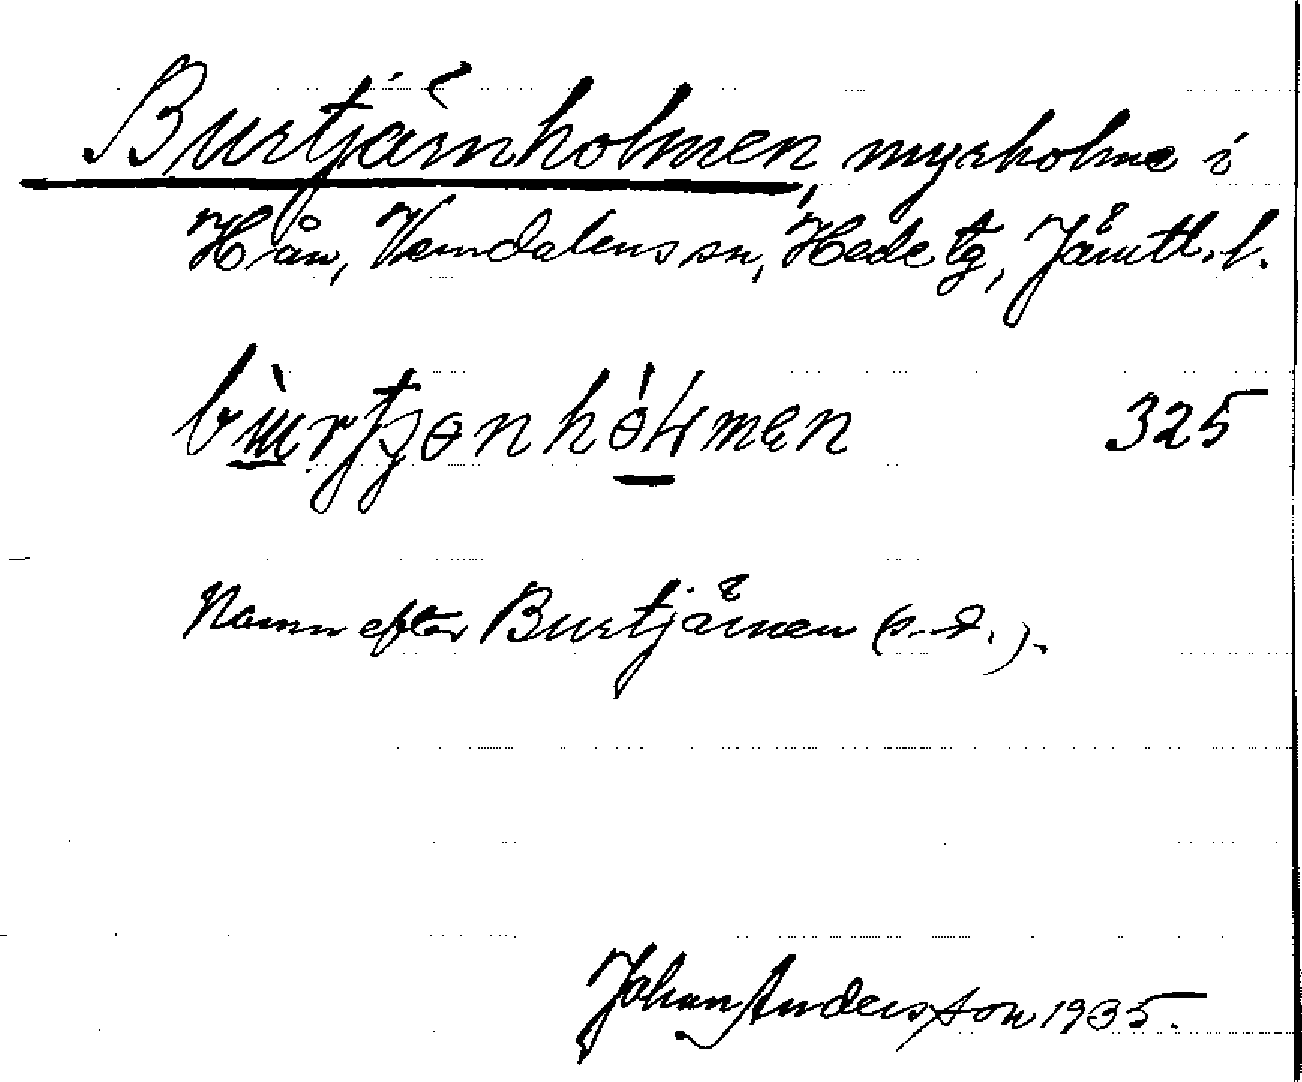 Burtjärnholmen, myrholme i
Hån, Vemdalens sn, Hede tg, Jämtl. l.
325
Namn efter Burtjärnen (s. d.).
Johan Andersson 1935.